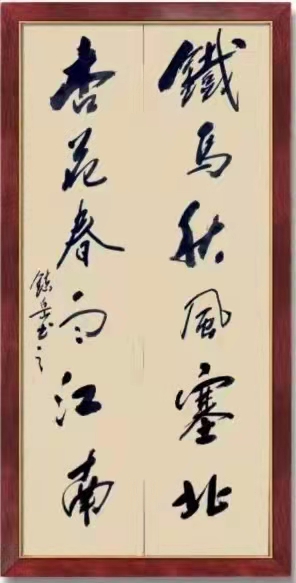 鐵馬秋風塞北
杏花春雨江南
鎮岳书之